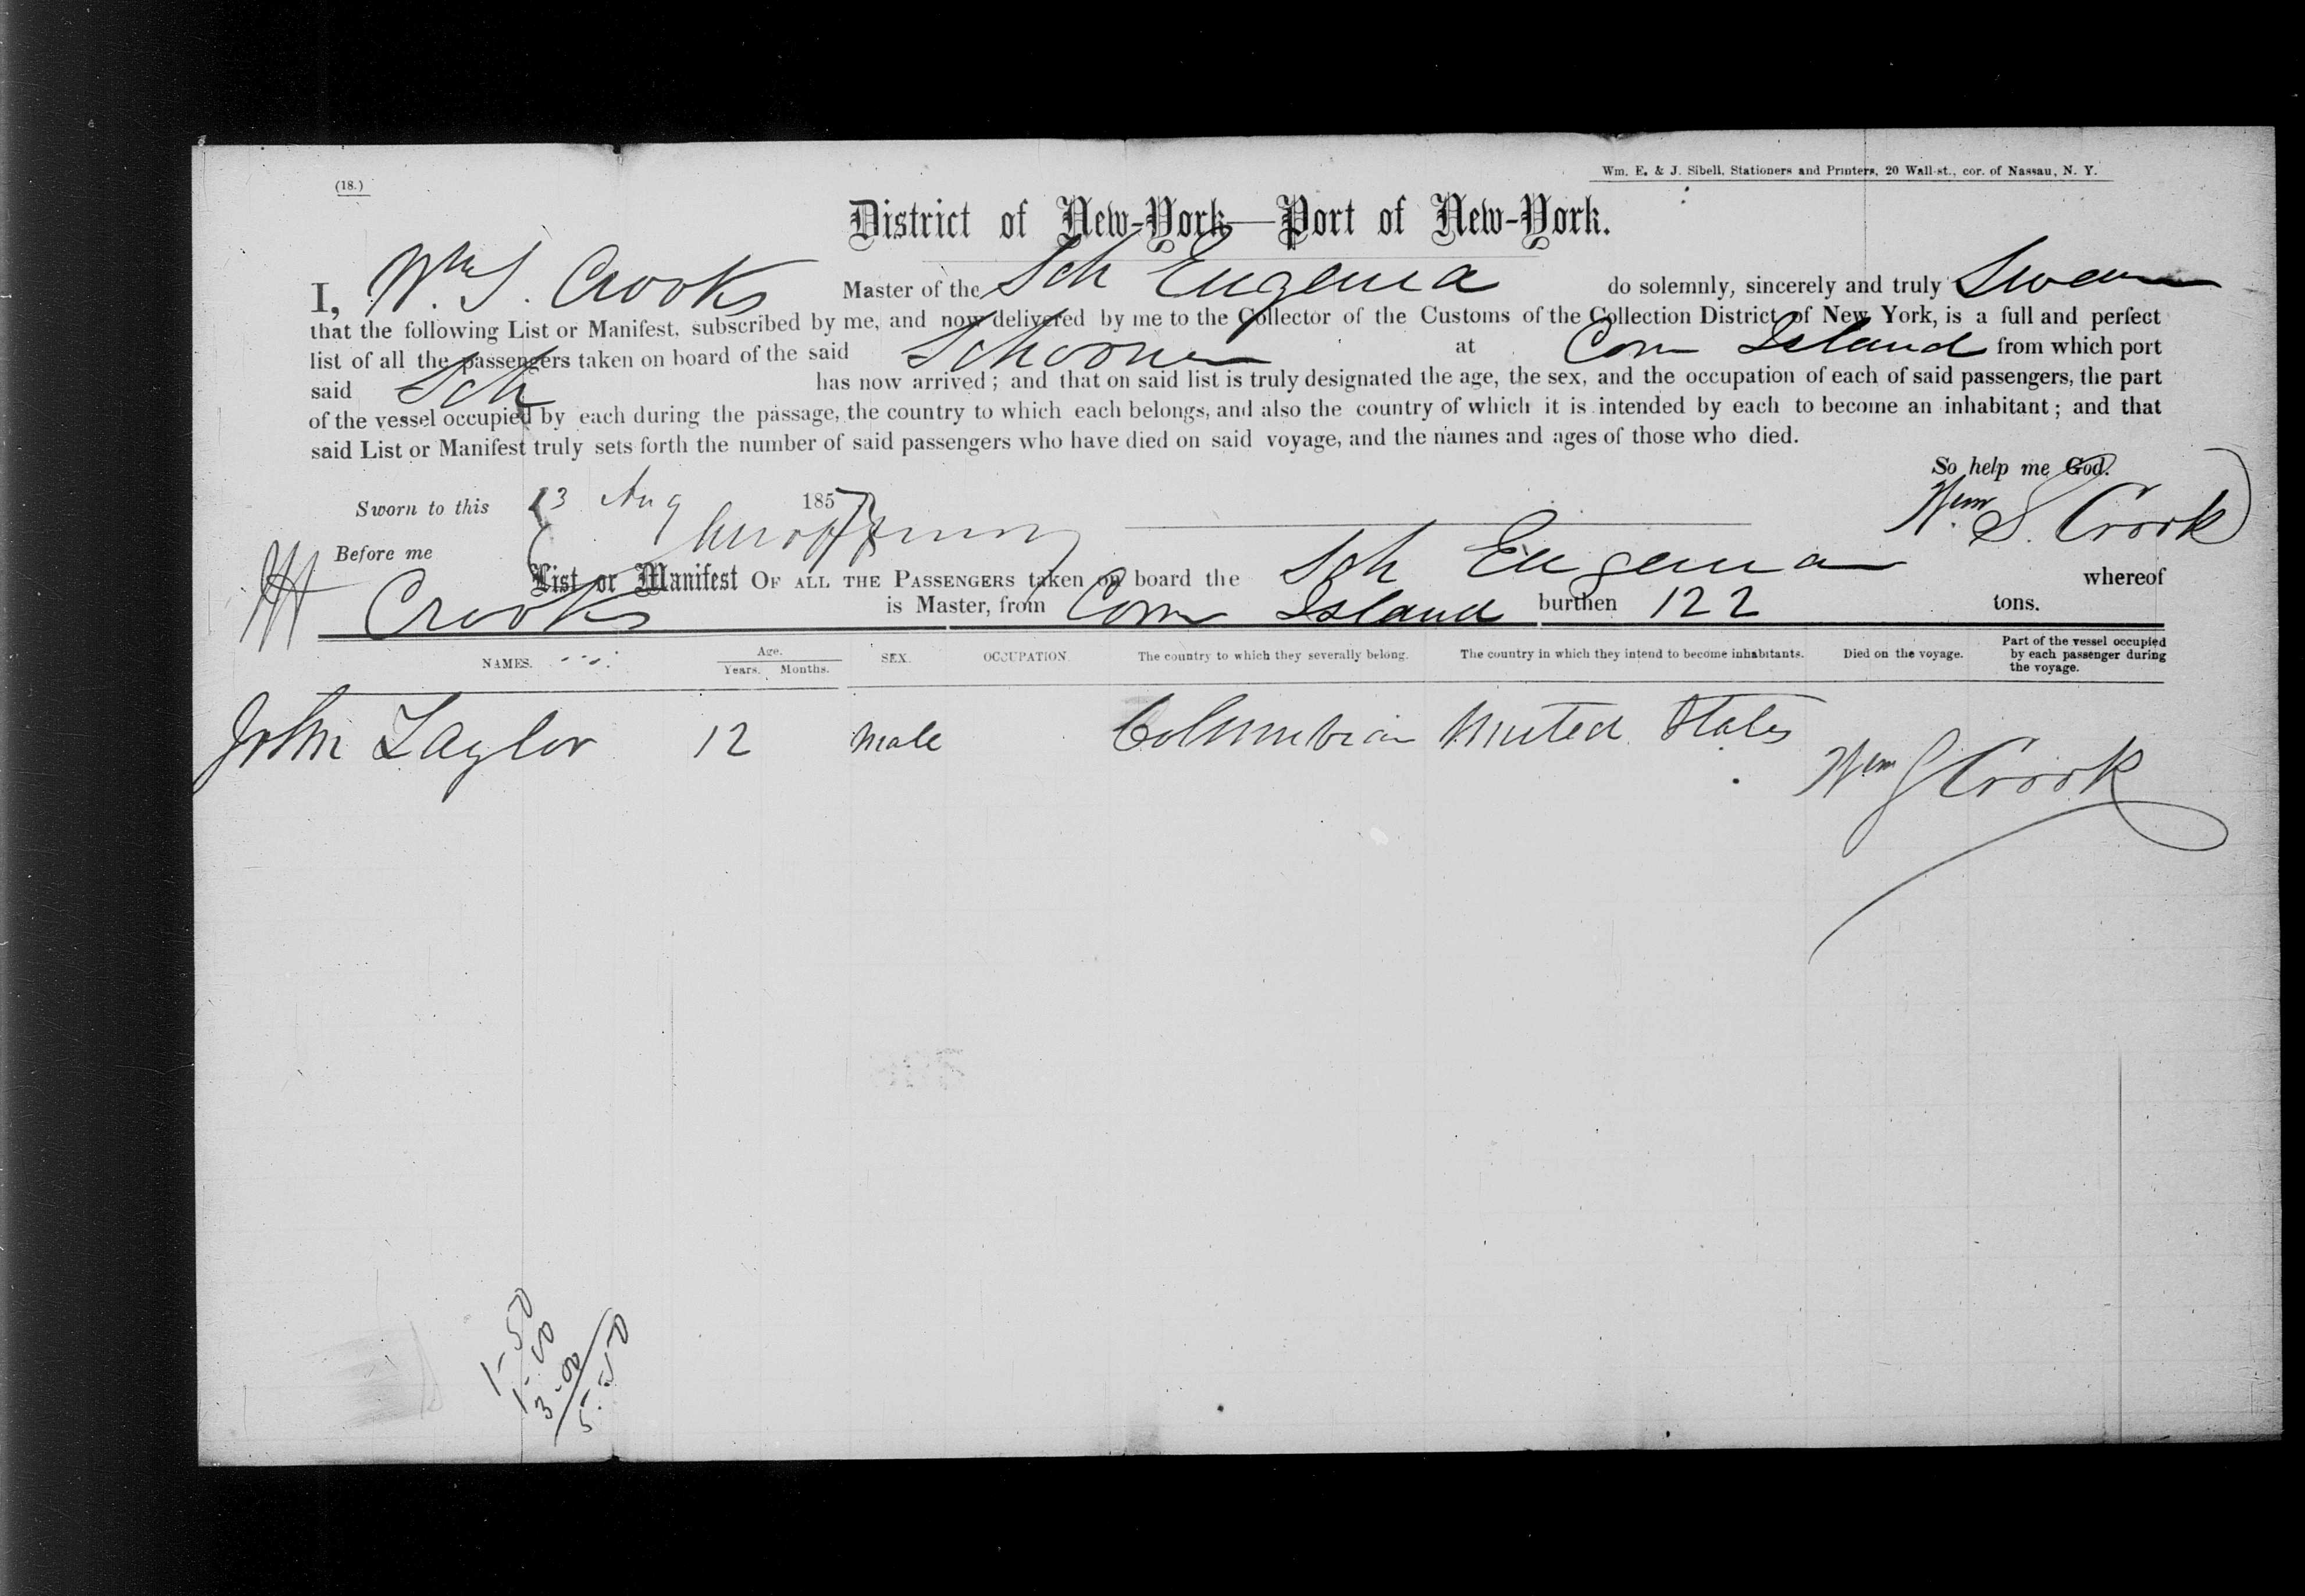 (18.)
Wm. E. & J. Sibell, Stationers and Printers, 20 Wall-st., cor. of Nassau, N. Y.
District of New-York—Port of New-York.
I, Wm S. Crooks Master of the Sch Eugenia do solemnly, sincerely and truly Swear
that the following List or Manifest, subscribed by me, and now delivered by me to the Collector of the Customs of the Collection District of New York, is a full and perfect
list of all the passengers taken on board of the said Schooner at Corn Island from which port
said Sch has now arrived; and that on said list is truly designated the age, the sex, and the occupation of each of said passengers, the part
of the vessel occupied by each during the passage, the country to which each belongs, and also the country of which it is intended by each to become an inhabitant; and that
said List or Manifest truly sets forth the number of said passengers who have died on said voyage, and the names and ages of those who died.
So help me God.
Sworn to this 13 Aug 1857
Wm S. Crook
Before me
List or Manifest OF ALL THE PASSENGERS taken on board the Sch Eugenia whereof
Crooks is Master, from Corn Island burthen 122 tons.
NAMES. Age. Years. Months. SEX. OCCUPATION The country to which they severally belong. The country in which they intend to become inhabitants. Died on the voyage. Part of the vessel occupied by each passenger during the voyage.
John Taylor 12 Male Columbia United States
Wm S Crook
1-50
1-00
3-00
5-50